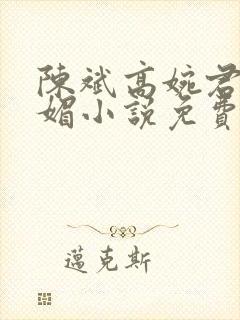 陳斌高婉君
媚小說免費
邁克斯